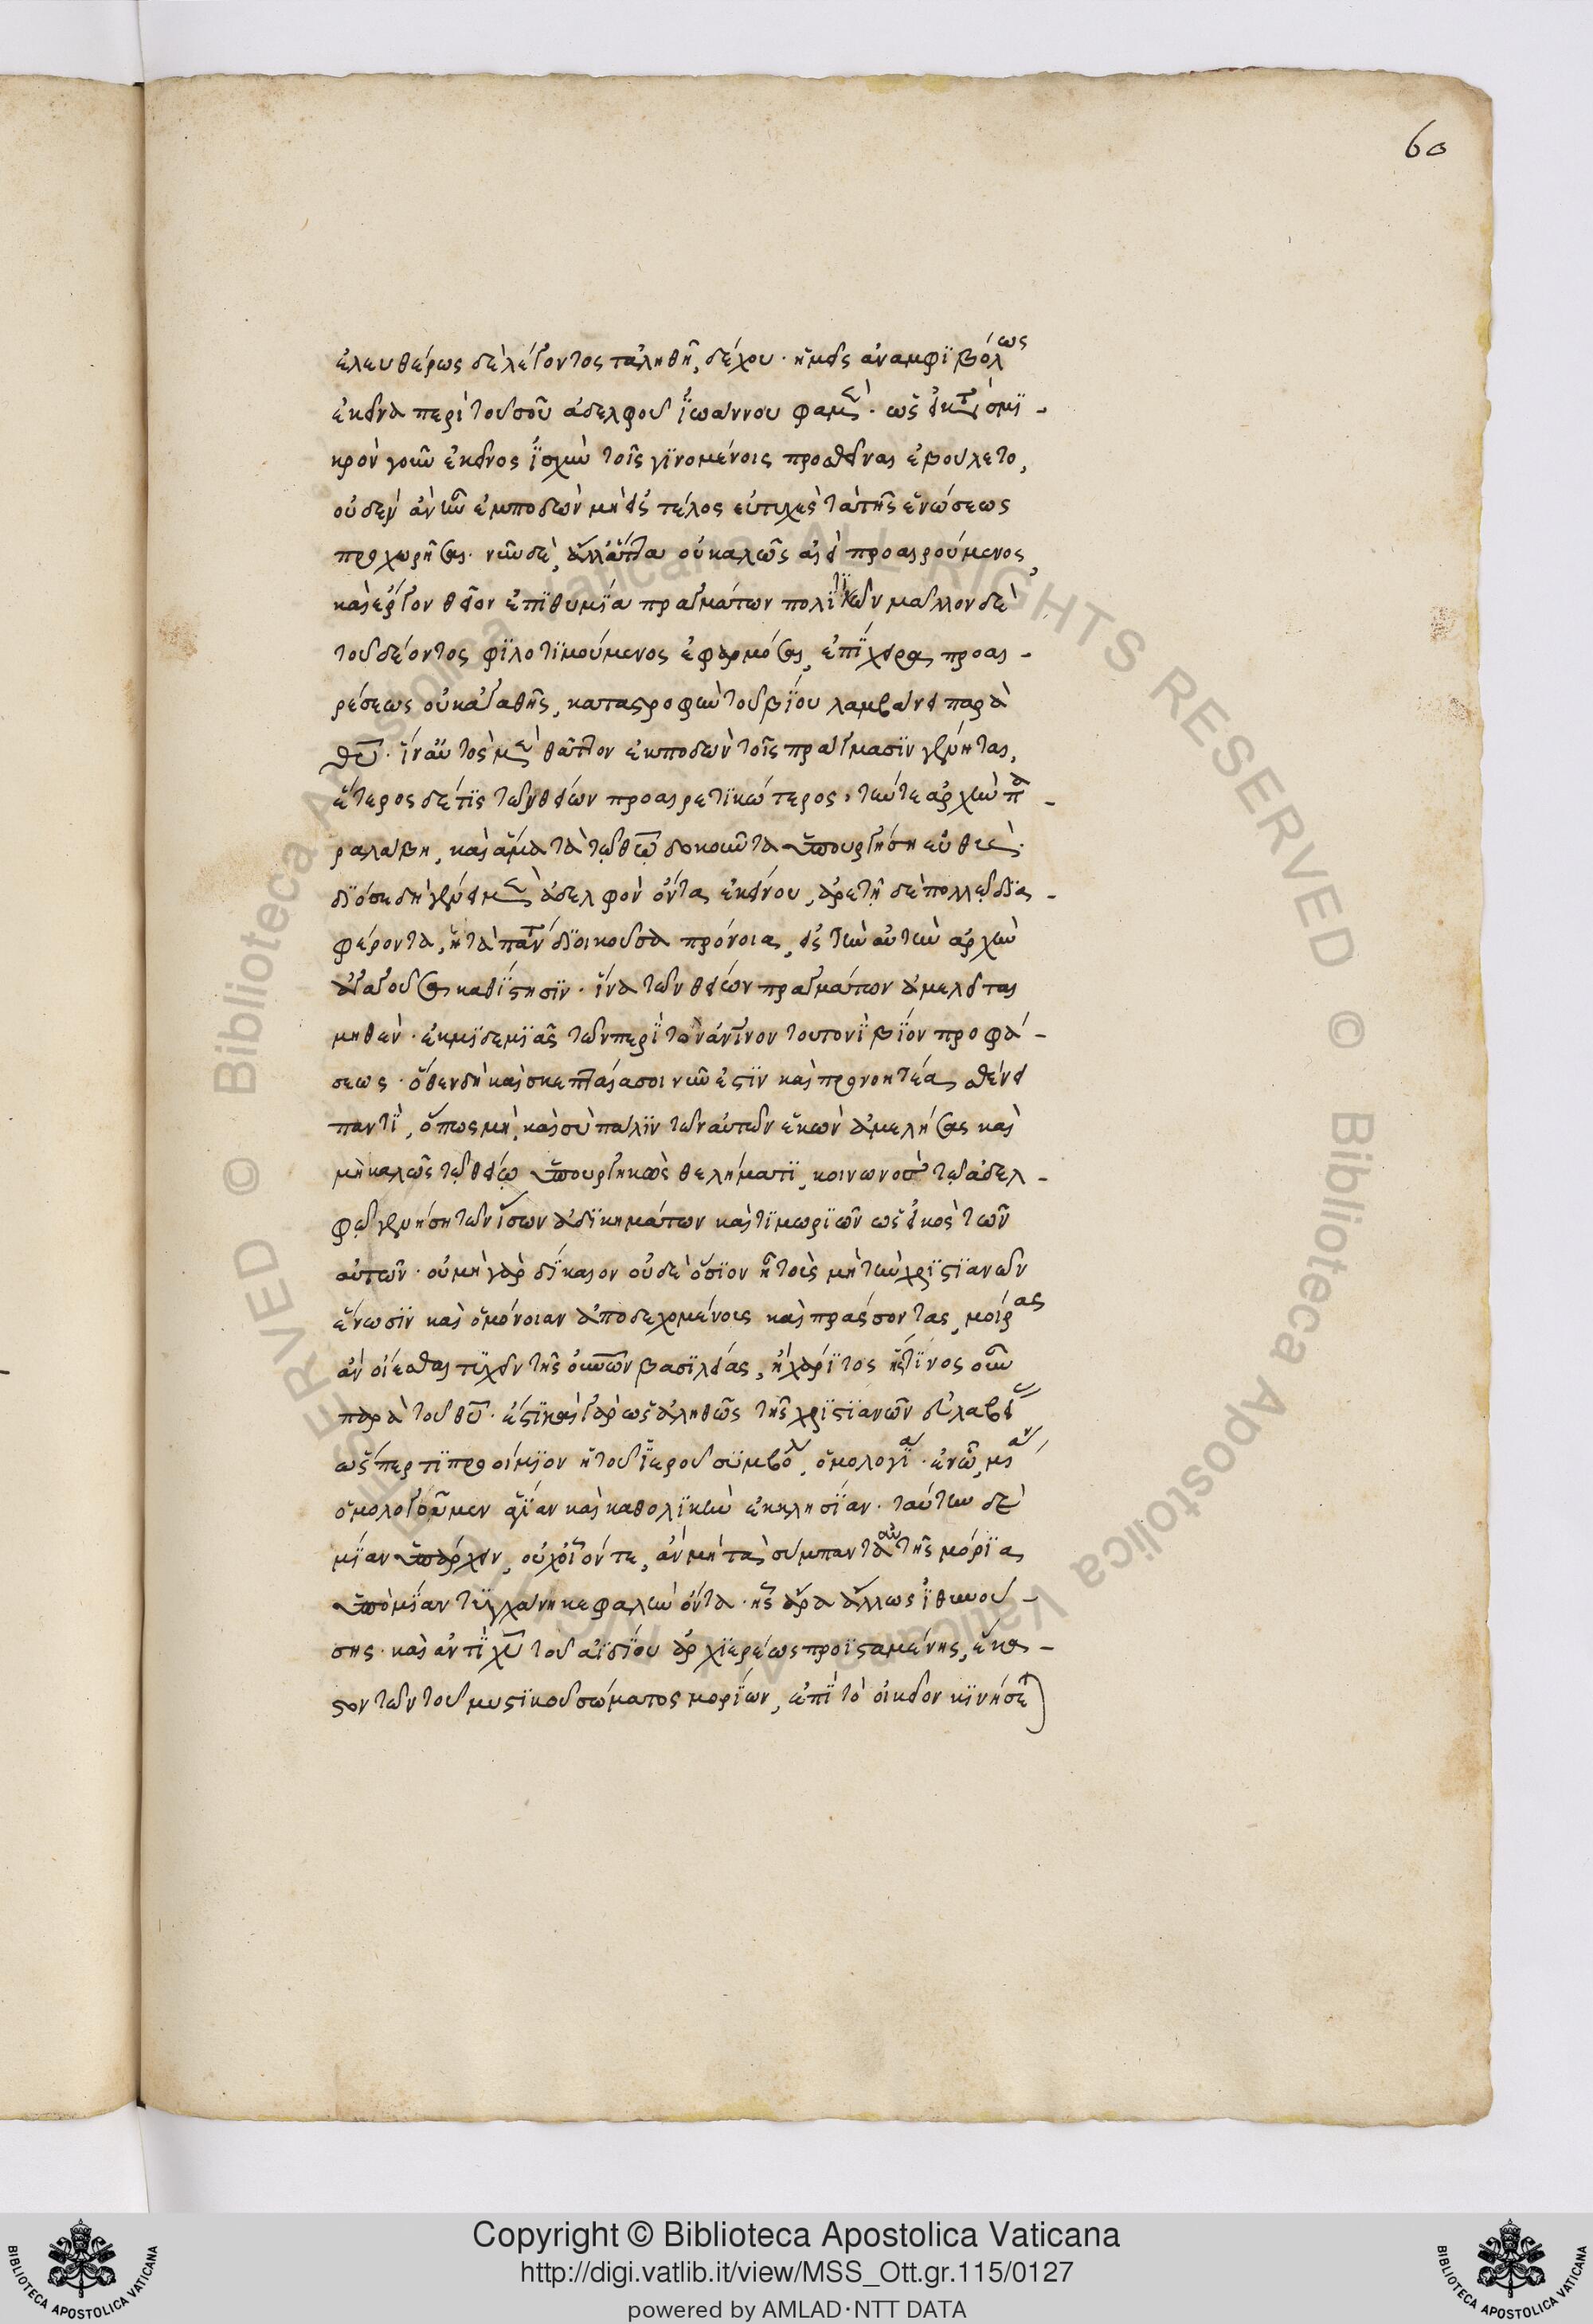 60
ἐλευθέρως δὲ λέγοντος τἀληθῆ, δέχου· ἡμεῖς ἀναμφιβόλως
ἐκεῖνα περὶ τοῦ σοῦ ἀδελφοῦ Ἰωάννου φαμὲν· ὡς εἰ κατὰ σμι-
κρὸν γοῦν ἐκεῖνος ἰσχὺν τοῖς γινομένοις προσθεῖναι ἐβούλετο,
οὐδὲν ἂν ἦν ἐμποδὼν μὴ εἰς τέλος εὐτυχὲς τὰ τῆς ἑνώσεως
προχωρῆσαι· νῦν δὲ, ἀλλάττα οὐ καλῶς ἀεὶ προαιρούμενος,
καὶ ἔργον θεῖον ἐπιθυμία πραγμάτων πολιτικῶν μᾶλλον δὲ
τοῦ δέοντος φιλοτιμούμενος ἐφαρμόσαι, ἐπίχειρα προαι-
ρέσεως οὐκ ἀγαθῆς, καταστροφὴν τοῦ βίου λαμβάνει παρὰ
θεοῦ· ἵν' αὐτὸς μὲν θᾶττον ἐκποδὼν τοῖς πράγμασιν γένηται,
ἕτερος δέ τις τῶν θείων προαιρετικώτερος, τήν τε ἀρχὴν πα-
ραλάβῃ, καὶ ἅμα τὰ τῷ θεῷ δοκοῦντα ὑπουργήσῃ εὐθὺς·
διό σε δὴ γένει μὲν ἀδελφὸν ὄντα ἐκείνου, ἀρετῇ δὲ πολλῷ δια-
φέροντα, ἡ τὰ πάντα διοικοῦσα πρόνοια, εἰς τὴν αὐτὴν ἀρχὴν
ἀγαγοῦσα καθίστησιν· ἵνα τῶν θείων πραγμάτων ἀμελεῖται
μηθὲν· ἐκ μιδεμιᾶς τῶν περὶ τὸν ἀνθρώπινον τουτονὶ βίον προφά-
σεως· ὅθεν δὴ καὶ σκεπταία σοι νῦν ἐστὶν καὶ προνοητέα σθένει
παντὶ, ὅπως μὴ, καὶ σὺ πάλιν τῶν αὐτῶν ἑκὼν ἀμελήσας καὶ
μὴ καλῶς τῷ θείῳ ὑπουργηκὼς θελήματι, κοινωνὸς τῷ ἀδελ-
φῷ γενήσῃ τῶν ἴσων ἀδικημάτων καὶ τιμωριῶν ὡς εἰκὸς τῶν
αὐτῶν· οὐ μὴ γὰρ δίκαιον οὐδὲ ὅσιον ἢ τοὺς μὴ τὴν χριστιανῶν
ἕνωσιν καὶ ὁμόνοιαν ἀποδεχομένους καὶ πράσσοντας, μοίρας
ἂν οἴεσθαι τυχεῖν τῆς οὐρανῶν βασιλείας, ἢ χάριτος ἥστινος οὖν
παρὰ τοῦ θεοῦ· ἔστι καὶ γὰρ ὡς ἀληθῶς τῆς χριστιανῶν εὐλαβείας
ὥσπερ τι προοίμιον ἡ τοῦ ἱεροῦ συμβόλου, ὁμολογία· ἐν ᾧ, μίαν
ὁμολογοῦμεν ἁγίαν καὶ καθολικὴν ἐκκλησίαν· ταύτην δὲ
μίαν ὑπάρχειν, οὐχ οἷόν τε, ἂν μὴ τὰ σύμπαντα αὐτῆς μόρια
ὑπὸ μίαν τυγχάνῃ κεφαλὴν ὄντα· ἧς ἄρα ἄλλως ἰθυνού-
σης· καὶ ἀντὶ χριστοῦ τοῦ ἀϊδίου ἀρχιερέως προϊσταμένης, ἕκα-
στον τῶν τοῦ μυστικοῦ σώματος μορίων, ἐπὶ τὸ οἰκεῖον κινήσει
Copyright © Biblioteca Apostolica Vaticana
http://digi.vatlib.it/view/MSS_Ott.gr.115/0127
powered by AMLAD·NTT DATA